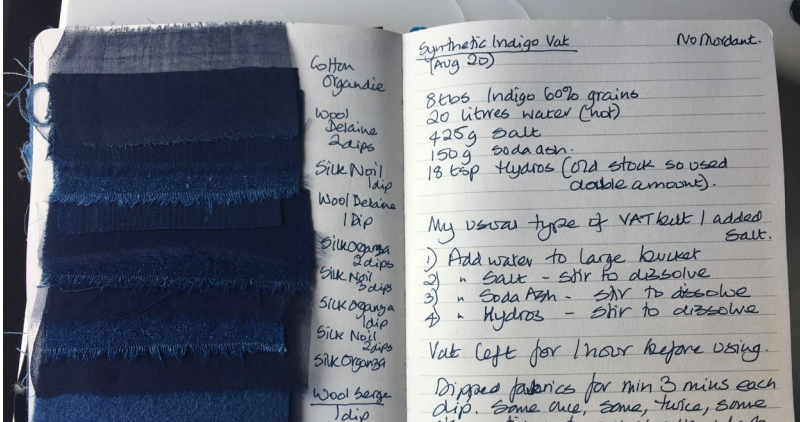 Cotton
Organdie
Wool
Delaine
2 dips
Silk Noil
1 dip
Wool Delaine
1 Dip
Silk Organza
2 dips
Silk Noil
3 dips
Silk Organza
1 dip
Silk Noil
2 dips
Silk Organza
Wool Serge
1 dip
Synthetic Indigo Vat No Mordant.
(Aug 20)
8 tbs Indigo 60% grains
20 litres water (hot)
425g Salt
150g Soda ash.
18 tsp Hydros (old stock so used
double amount).
My usual type of VAT but I added
Salt.
1) Add water to large bucket
2) " Salt - stir to dissolve
3) " Soda Ash - stir to dissolve
4) " Hydros - stir to dissolve
Vat left for 1 hour before using.
Dipped fabrics for min 3 mins each
dip. Some once, some, twice, some